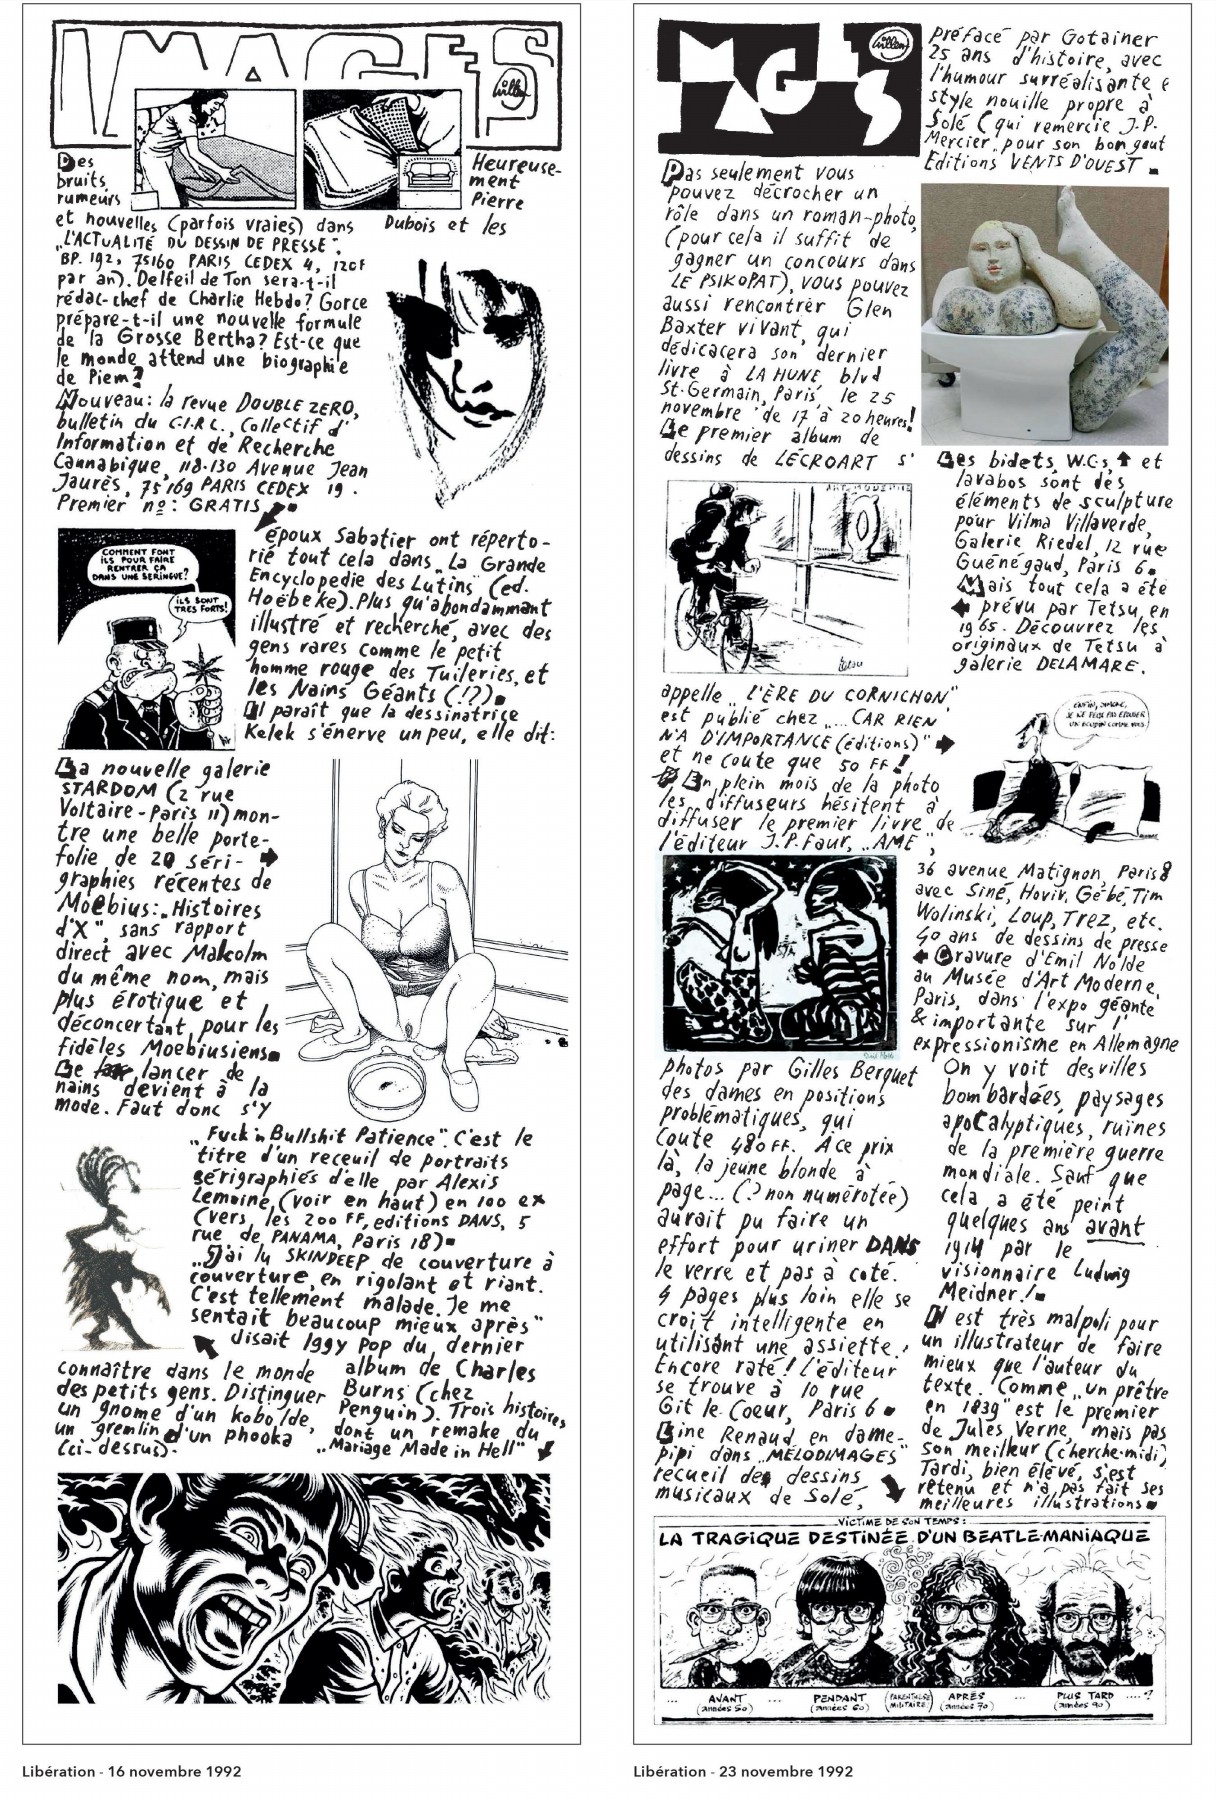 IMAGES
Willem
Des
bruits,
rumeurs
et nouvelles (parfois vraies) dans
„L'ACTUALITÉ DU DESSIN DE PRESSE",
BP. 192, 75160 PARIS CEDEX 4, 120F
par an). Delfeil de Ton sera-t-il
rédac-chef de Charlie Hebdo? Gorce
prépare-t-il une nouvelle formule
de la Grosse Bertha? Est-ce que
le monde attend une biographie
de Piem?
Nouveau: la revue DOUBLE ZERO,
bulletin du C.I.R.C., Collectif d'
Information et de Recherche
Cannabique, 118-130 Avenue Jean
Jaurès, 75169 PARIS CEDEX 19.
Premier nº: GRATIS.
COMMENT FONT
ILS POUR FAIRE
RENTRER ÇA
DANS UNE SERINGUE?
ILS SONT
TRÈS FORTS!
La nouvelle galerie
STARDOM (2 rue
Voltaire-Paris 11) mon-
tre une belle porte-
folie de 20 séri-
graphies récentes de
Moebius: „Histoires
d'X", sans rapport
direct avec Malcolm
du même nom, mais
plus érotique et
déconcertant pour les
fidèles Moebiusiens.
Le lancer de
nains devient à la
mode. Faut donc s'y
connaître dans le monde
des petits gens. Distinguer
un gnome d'un kobolde,
un gremlin d'un phooka
(ci-dessus).
Heureuse-
ment
Pierre
Dubois et les
époux Sabatier ont réperto-
rié tout cela dans „La Grande
Encyclopedie des Lutins" (ed.
Hoëbeke). Plus qu'abondammant
illustré et recherché, avec des
gens rares comme le petit
homme rouge des Tuileries, et
les Nains Géants (!?).
Il paraît que la dessinatrice
Kelek s'énerve un peu, elle dit:
„Fuck'n Bullshit Patience". C'est le
titre d'un receuil de portraits
sérigraphiés d'elle par Alexis
Lemoine, (voir en haut) en 100 ex
(vers les 200 FF, editions DANS, 5
rue de PANAMA, Paris 18).
„J'ai lu SKINDEEP de couverture à
couverture, en rigolant et riant.
C'est tellement malade. Je me
sentait beaucoup mieux après"
disait Iggy Pop du dernier
album de Charles
Burns (chez
Penguin). Trois histoires
dont un remake du
„Mariage Made in Hell"
Libération - 16 novembre 1992
IMAGES
Willem
Pas seulement vous
pouvez décrocher un
rôle dans un roman-photo,
(pour cela il suffit de
gagner un concours dans
LE PSIKOPAT), vous pouvez
aussi rencontrer Glen
Baxter vivant, qui
dédicacera son dernier
livre à LA HUNE blvd
St-Germain, Paris, le 25
novembre de 17 à 20 heures!
Le premier album de
dessins de LECROART s'
ART MODERNE
tetsu
appelle „L'ÈRE DU CORNICHON"
est publié chez „... CAR RIEN
N'A D'IMPORTANCE (éditions)"
et ne coute que 50 FF!
En plein mois de la photo
les diffuseurs hésitent à
diffuser le premier livre de
l'éditeur J.P. Faur, „AME",
photos par Gilles Berquet
des dames en positions
problématiques, qui
coute 480 FF. A ce prix
là, la jeune blonde à
page... (? non numérotée)
aurait pu faire un
effort pour uriner DANS
le verre et pas à coté.
4 pages plus loin elle se
croit intelligente en
utilisant une assiette.
Encore raté! L'éditeur
se trouve à 10 rue
Git-le-Coeur, Paris 6.
Line Renaud en dame-
pipi dans „MÉLODIMAGES"
recueil des dessins
musicaux de Solé,
préfacé par Gotainer
25 ans d'histoire, avec
l'humour surréalisante &
style nouille propre à
Solé (qui remercie J.P.
Mercier „pour son bon gout"
Editions VENTS D'OUEST.
Les bidets, W.C.s, et
lavabos sont des
éléments de sculpture
pour Vilma Villaverde,
Galerie Riedel, 12 rue
Guénégaud, Paris 6.
Mais tout cela a été
prévu par Tetsu, en
1965. Découvrez les
originaux de Tetsu à
galerie DELAMARE.
ENFIN, SIMONE,
JE NE PEUX PAS ÉPOUSER
UN BOUDIN COMME VOUS.
36 avenue Matignon, Paris 8
avec Siné, Hoviv, Gébé, Tim
Wolinski, Loup, Trez, etc.
40 ans de dessins de presse
Gravure d'Emil Nolde
au Musée d'Art Moderne,
Paris, dans l'expo géante
& importante sur l'
expressionisme en Allemagne
On y voit des villes
bombardées, paysages
apocalyptiques, ruines
de la première guerre
mondiale. Sauf que
cela a été peint
quelques ans avant
1914 par le
visionnaire Ludwig
Meidner!
Il est très malpoli pour
un illustrateur de faire
mieux que l'auteur du
texte. Comme „un prêtre
en 1839" est le premier
de Jules Verne, mais pas
son meilleur (cherche-midi)
Tardi, bien élevé, s'est
retenu et n'a pas fait ses
meilleures illustrations.
VICTIME DE SON TEMPS:
LA TRAGIQUE DESTINÉE D'UN BEATLE-MANIAQUE
... AVANT ... PENDANT (PARENTHÈSE APRÈS ... PLUS TARD ....?
(années 50) (années 60) MILITAIRE!) (années 70) (années 90)
Libération - 23 novembre 1992